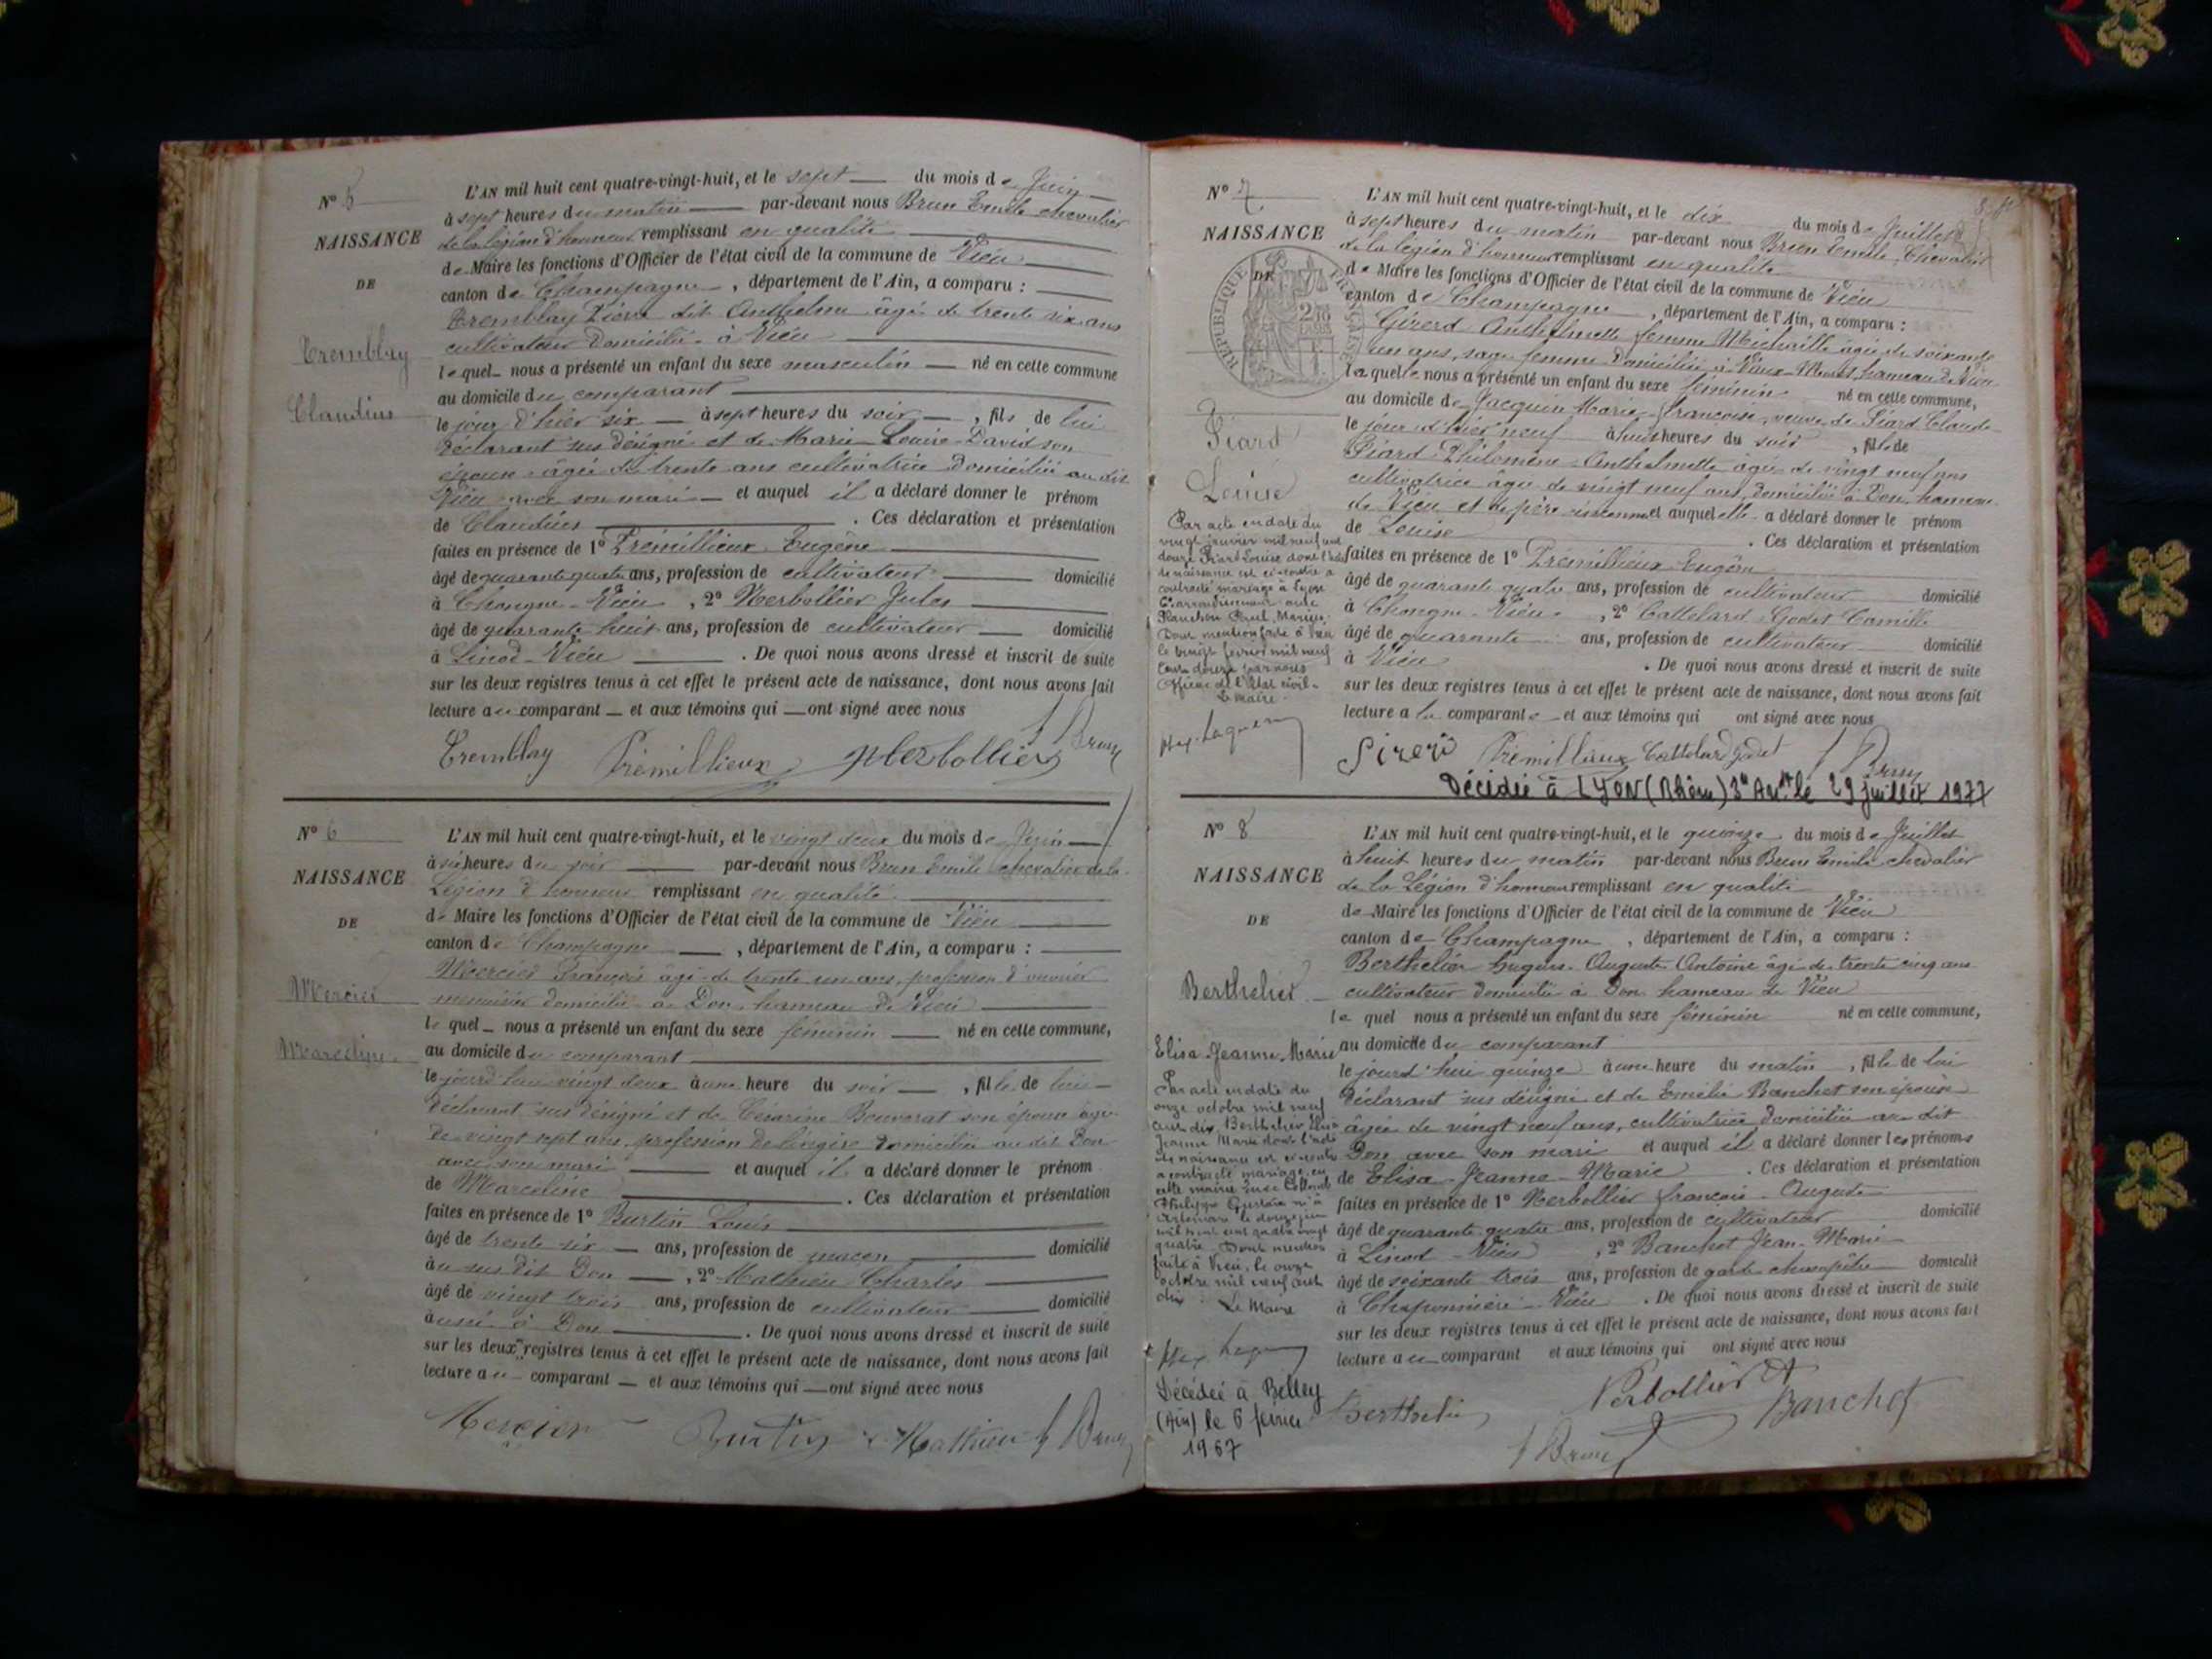 N° 5
NAISSANCE
DE
Tremblay
Claudius
L'AN mil huit cent quatre-vingt-huit, et le sept du mois de Juin
à sept heures du matin par-devant nous Brun Emile chevalier
de la légion d'honneur remplissant en qualité
de Maire les fonctions d'Officier de l'état civil de la commune de Vieu
canton de Champagne, département de l'Ain, a comparu :
Tremblay Pierre dit Anthelme âgé de trente six ans
cultivateur domicilié à Vieu
lequel nous a présenté un enfant du sexe masculin né en cette commune
au domicile du comparant
le jour d'hier six à sept heures du soir, fils de lui
déclarant sus désigné et de Marie Louise David son
épouse âgée de trente ans cultivatrice domiciliée au dit
Vieu avec son mari et auquel il a déclaré donner le prénom
de Claudius. Ces déclaration et présentation
faites en présence de 1° Prémillieux Eugène
âgé de quarante quatre ans, profession de cultivateur domicilié
à Chongne - Vieu, 2° Nerbollier Jules
âgé de quarante huit ans, profession de cultivateur domicilié
à Linod - Vieu. De quoi nous avons dressé et inscrit de suite
sur les deux registres tenus à cet effet le présent acte de naissance, dont nous avons fait
lecture au comparant et aux témoins qui ont signé avec nous
Tremblay Prémillieux Nerbollier Brun
N° 6
NAISSANCE
DE
Mercier
Marceline
L'AN mil huit cent quatre-vingt-huit, et le vingt deux du mois de Juin
à six heures du soir par-devant nous Brun Emile chevalier de la
Légion d'honneur remplissant en qualité
de Maire les fonctions d'Officier de l'état civil de la commune de Vieu
canton de Champagne, département de l'Ain, a comparu :
Mercier François âgé de trente un ans, profession d'ouvrier
menuisier domicilié à Don, hameau de Vieu
lequel nous a présenté un enfant du sexe féminin né en cette commune,
au domicile du comparant
le jourd'hui vingt deux à une heure du soir, fille de lui
déclarant sus désigné et de Césarine Bouvorat son épouse âgée
de vingt sept ans, profession de lingère domiciliée au dit Don
avec son mari et auquel il a déclaré donner le prénom
de Marceline. Ces déclaration et présentation
faites en présence de 1° Burtin Louis
âgé de trente six ans, profession de maçon domicilié
au sus dit Don, 2° Mathieu Charles
âgé de vingt trois ans, profession de cultivateur domicilié
aussi à Don. De quoi nous avons dressé et inscrit de suite
sur les deux registres tenus à cet effet le présent acte de naissance, dont nous avons fait
lecture au comparant et aux témoins qui ont signé avec nous
Mercier Burtin Mathieu Brun
N° 7
NAISSANCE
DE
RÉPUBLIQUE FRANÇAISE
Piard
Louise
Par acte en date du
vingt janvier mil neuf cent
douze Piard Louise dont l'acte
de naissance est ci-contre a
contracté mariage à Lyon
arrondissement avec
Planchon Paul Marius
Dont mention faite à Vieu
le vingt février mil neuf
cent douze par nous
Officier de l'état civil
Le Maire
L'AN mil huit cent quatre-vingt-huit, et le dix du mois de Juillet
à sept heures du matin par-devant nous Brun Emile, Chevalier
de la légion d'honneur remplissant en qualité
de Maire les fonctions d'Officier de l'état civil de la commune de Vieu
canton de Champagne, département de l'Ain, a comparu :
Girerd Anthelmette femme Michaille âgée de soixante
un ans, sage femme domiciliée à hameau de Vieu
laquelle nous a présenté un enfant du sexe féminin né en cette commune,
au domicile de Jacquin Marie françoise, veuve de Piard Claude
le jour d'hier neuf à huit heures du soir, fille de
Piard Philomène Anthelmette âgée de vingt neuf ans
cultivatrice âgée de vingt neuf ans, domiciliée à Don, hameau
de Vieu et de père inconnu et auquel elle a déclaré donner le prénom
de Louise. Ces déclaration et présentation
faites en présence de 1° Prémillieux Eugène
âgé de quarante quatre ans, profession de cultivateur domicilié
à Chongne - Vieu, 2° Cattelard Godet Camille
âgé de quarante ans, profession de cultivateur domicilié
à Vieu. De quoi nous avons dressé et inscrit de suite
sur les deux registres tenus à cet effet le présent acte de naissance, dont nous avons fait
lecture à la comparante et aux témoins qui ont signé avec nous
Prémillieux Cattelard Godet Brun
Décédée à LYON (Rhône) 3e Arrt le 29 juillet 1977
N° 8
NAISSANCE
DE
Berthelier
Elisa Jeanne Marie
Par acte en date du
onze octobre mil neuf
cent dix, Berthelier Elisa
Jeanne Marie dont l'acte
de naissance est ci-contre
a contracté mariage en
cette mairie avec
Philippe Gustave né à
le douze juin
mil huit cent quatre vingt
quatre. Dont mention
faite à Vieu, le onze
octobre mil neuf cent
dix
Le Maire
Décédée à Belley
(Ain) le 6 février
1967
L'AN mil huit cent quatre-vingt-huit, et le quinze du mois de Juillet
à huit heures du matin par-devant nous Brun Emile chevalier
de la Légion d'honneur remplissant en qualité
de Maire les fonctions d'Officier de l'état civil de la commune de Vieu
canton de Champagne, département de l'Ain, a comparu :
Berthelier Hugues Auguste Antoine âgé de trente cinq ans
cultivateur domicilié à Don hameau de Vieu
lequel nous a présenté un enfant du sexe féminin né en cette commune,
au domicile du comparant
le jourd'hui quinze à une heure du matin, fille de lui
déclarant sus désigné et de Emélie Banchet son épouse
âgée de vingt neuf ans, cultivatrice domiciliée au dit
Don avec son mari et auquel il a déclaré donner les prénoms
de Elisa Jeanne Marie. Ces déclaration et présentation
faites en présence de 1° Nerbollier françois Auguste
âgé de quarante quatre ans, profession de cultivateur domicilié
à Linod - Vieu, 2° Banchet Jean-Marie
âgé de soixante trois ans, profession de garde champêtre domicilié
à Chaponnière - Vieu. De quoi nous avons dressé et inscrit de suite
sur les deux registres tenus à cet effet le présent acte de naissance, dont nous avons fait
lecture au comparant et aux témoins qui ont signé avec nous
Berthelier Nerbollier Banchet
Brun